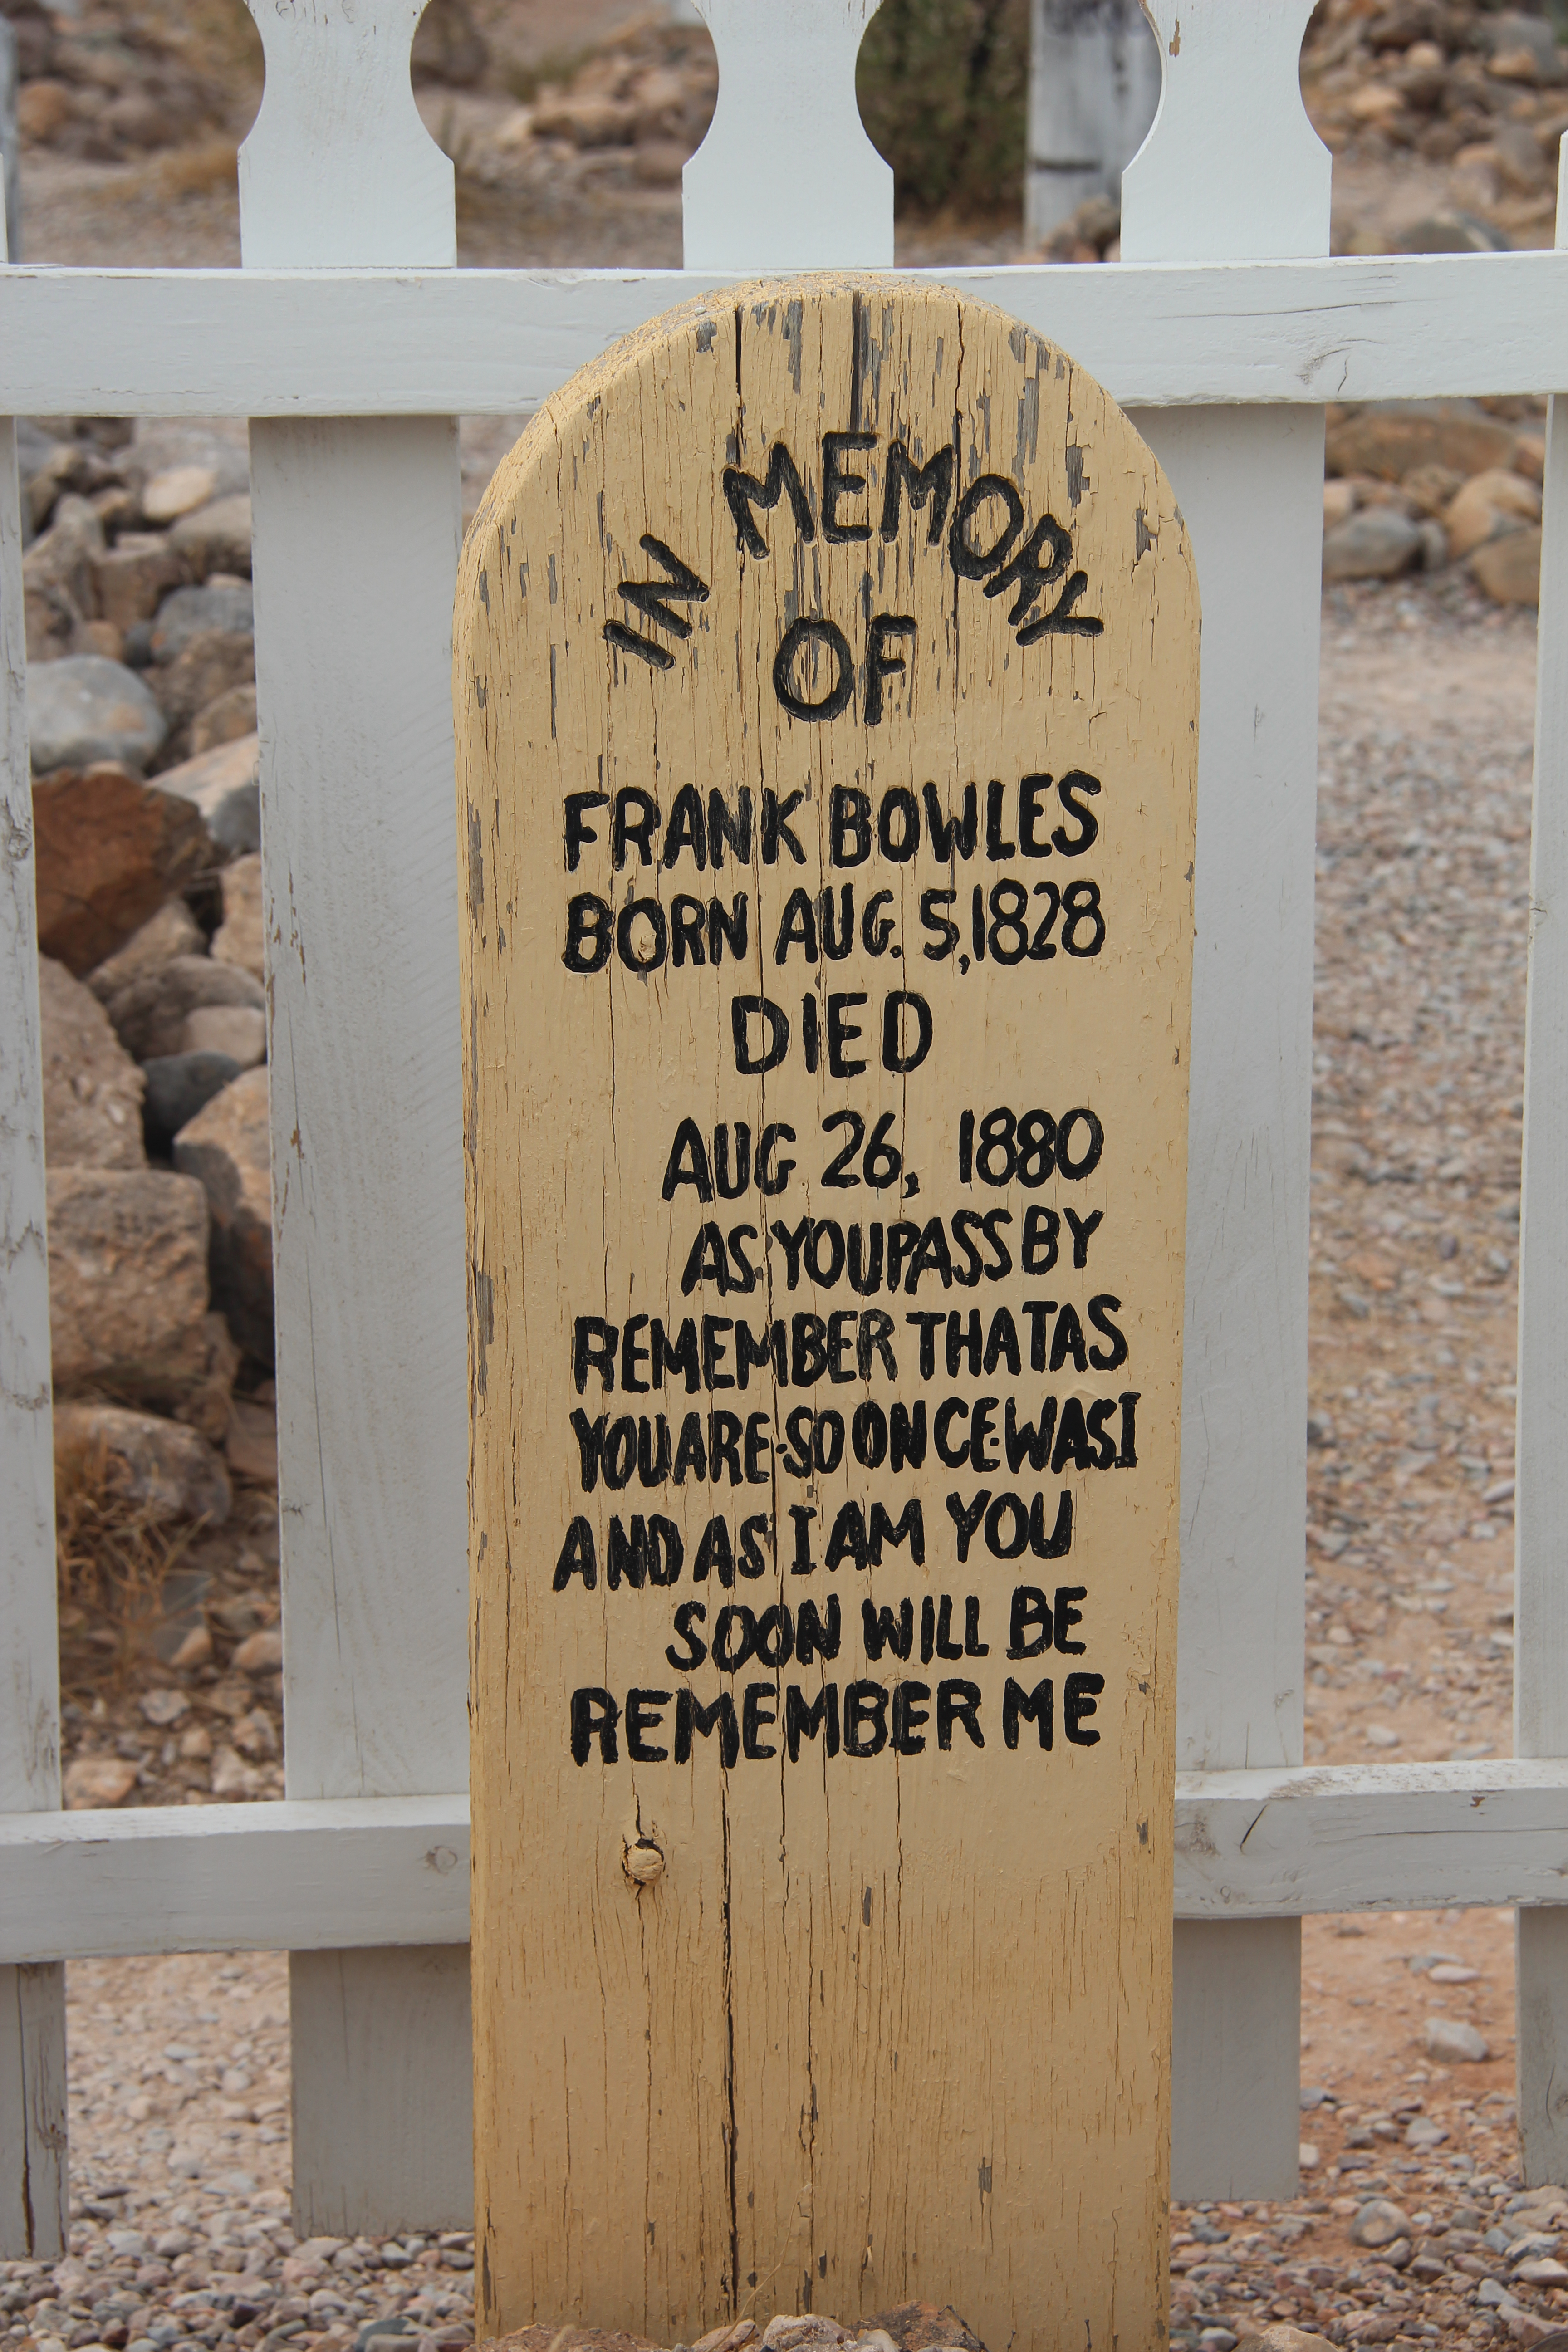 IN MEMORY
OF
FRANK BOWLES
BORN AUG. 5,1828
DIED
AUG 26, 1880
AS YOU PASS BY
REMEMBER THAT AS
YOU ARE SO ONCE WAS I
AND AS I AM YOU
SOON WILL BE
REMEMBER ME